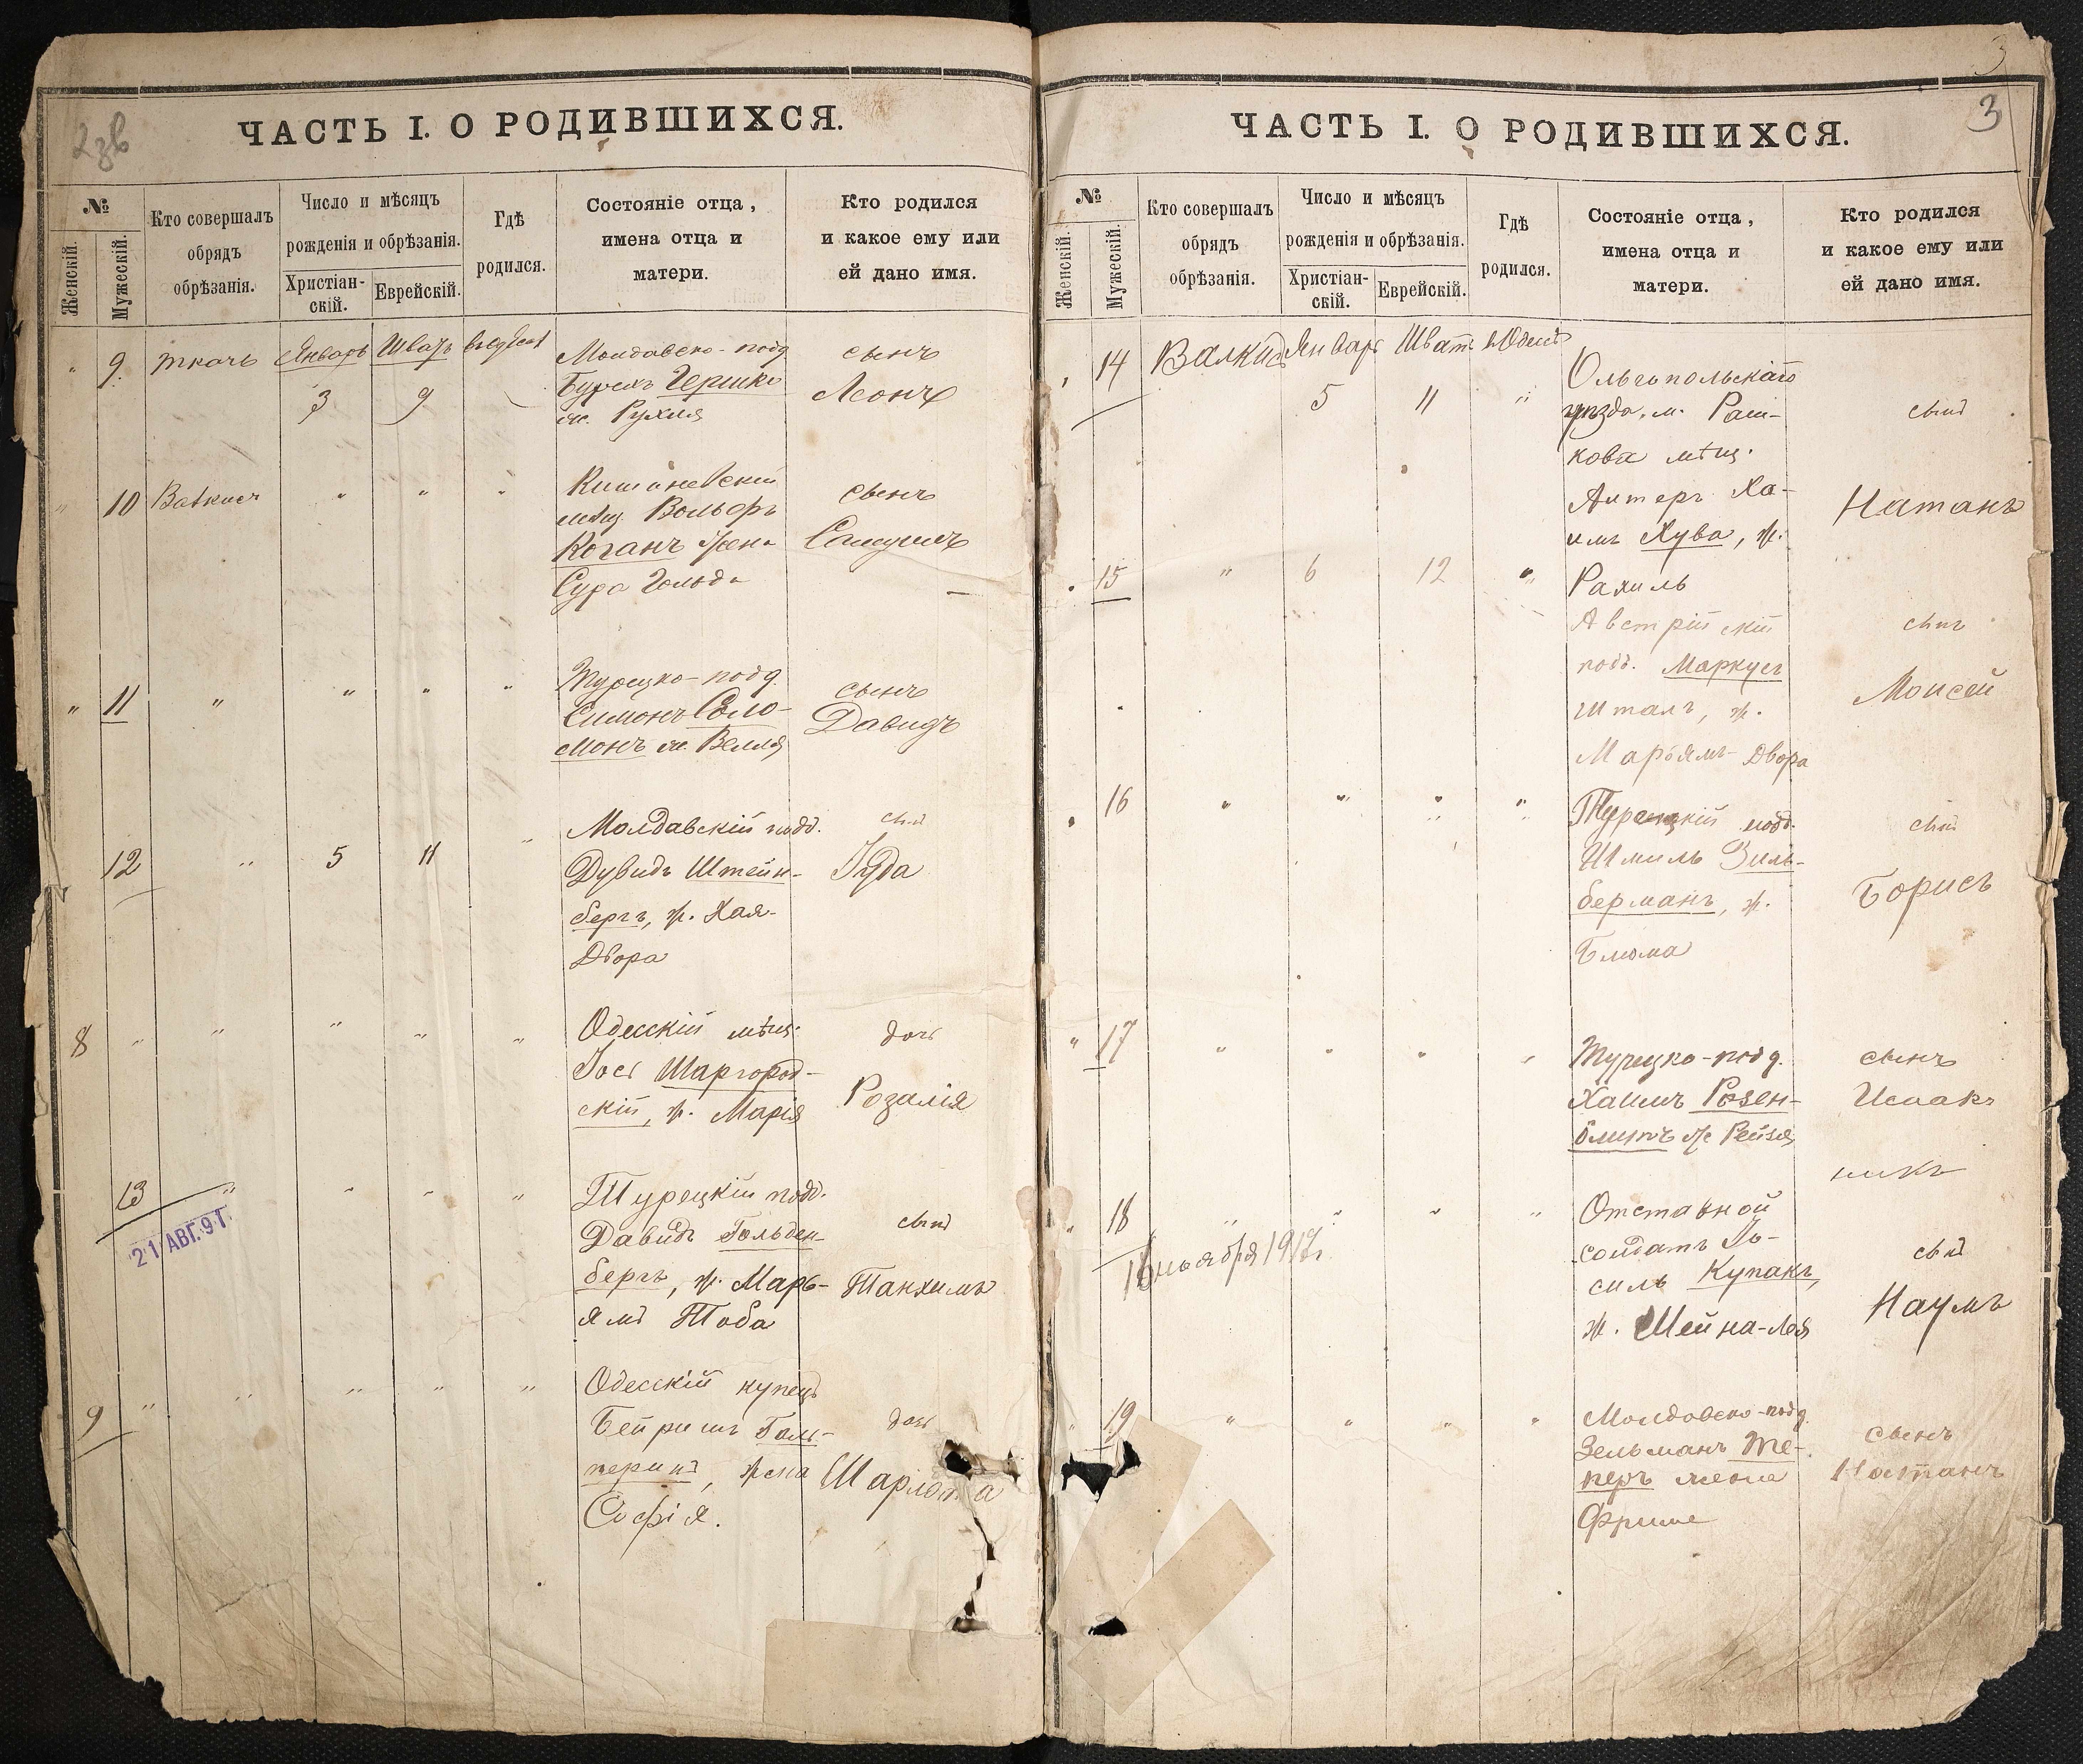 2 зв
ЧАСТЬ I. О РОДИВШИХСЯ.
№
Женскій.
Мужескій.
Кто совершалъ
обрядъ
обрѣзанія.
Число и мѣсяцъ
рожденія и обрѣзанія.
Христіан-
скій.
Еврейскій.
Гдѣ
родился.
Состояніе отца,
имена отца и
матери.
Кто родился
и какое ему или
ей дано имя.
" 9 Ткачъ Январь Шватъ
3 9
Молдавско-подд
Бурехъ Гершко
ж. Рухля
сынъ
Леонъ
" 10 " " "
Кишиневскій
мѣщ. Вольфъ
Коганъ жена
Сура Гольда
сынъ
Самуилъ
" 11 " " " "
Турецко-подд.
Симонъ Соло-
монъ ж. Велля
сынъ
Давидъ
12 " 5 11 "
Молдавскій подд.
Дувидъ Штейн-
бергъ, ж. Хая-
Двора
сынъ
Іуда
8 " " " " "
Одесскій мѣщ.
Іось Шаргород-
скій, ж. Марія
дочь
Розалія
13 " " " "
21 АВГ. 9 Г.
Турецкій подд.
Давидъ Гольден-
бергъ, ж. Марь-
ямъ Тоба
сынъ
Танхимъ
9 " " " " "
Одесскій купецъ
Бейришъ Галь-
перинъ, жена
Софія.
дочь
Шарлотта
3
3
ЧАСТЬ I. О РОДИВШИХСЯ.
№
Женскій.
Мужескій.
Кто совершалъ
обрядъ
обрѣзанія.
Число и мѣсяцъ
рожденія и обрѣзанія.
Христіан-
скій.
Еврейскій.
Гдѣ
родился.
Состояніе отца,
имена отца и
матери.
Кто родился
и какое ему или
ей дано имя.
" 14 Январь Шватъ
5 11 "
Ольгопольскаго
уѣзда, м. Раш-
кова мѣщ.
Алтеръ Ха-
имъ Хува, ж.
Рахиль
сынъ
Натанъ
" 15 " 6 12 "
Австрійскій
подд. Маркусъ
Шталъ, ж.
Марьямъ-Двора
сынъ
Моисей
" 16 " " " "
Турецкій подд.
Шмиль Зиль-
берманъ, ж.
Блюма
сынъ
Борисъ
" 17 " " " "
Турецко-подд.
Хаимъ Розен-
блитъ ж Рейзя
сынъ
Исаакъ
" 18 " " " "
16 ноября 1917 г.
Отставной
солдатъ Іо-
силь Купакъ,
ж. Шейна-Лея
сынъ
Наумъ
" 19 " " " "
Молдавско-подд.
Зельманъ Те-
перъ жена
Фрима
сынъ
Натанъ